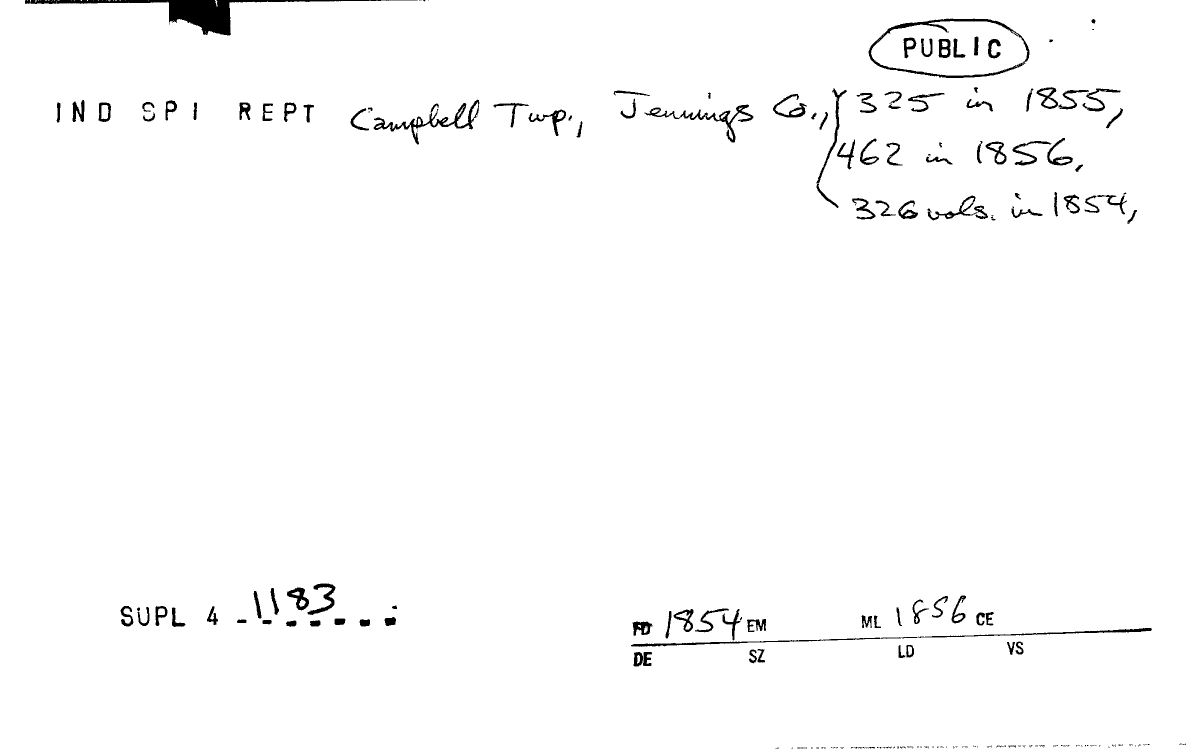 PUBLIC
IND SPI REPT Campbell Twp., Jennings Co., 325 in 1855,
462 in 1856,
326 vols. in 1854,
SUPL 4 1183
FD 1854 EM ML 1856 CE
DE SZ LD VS